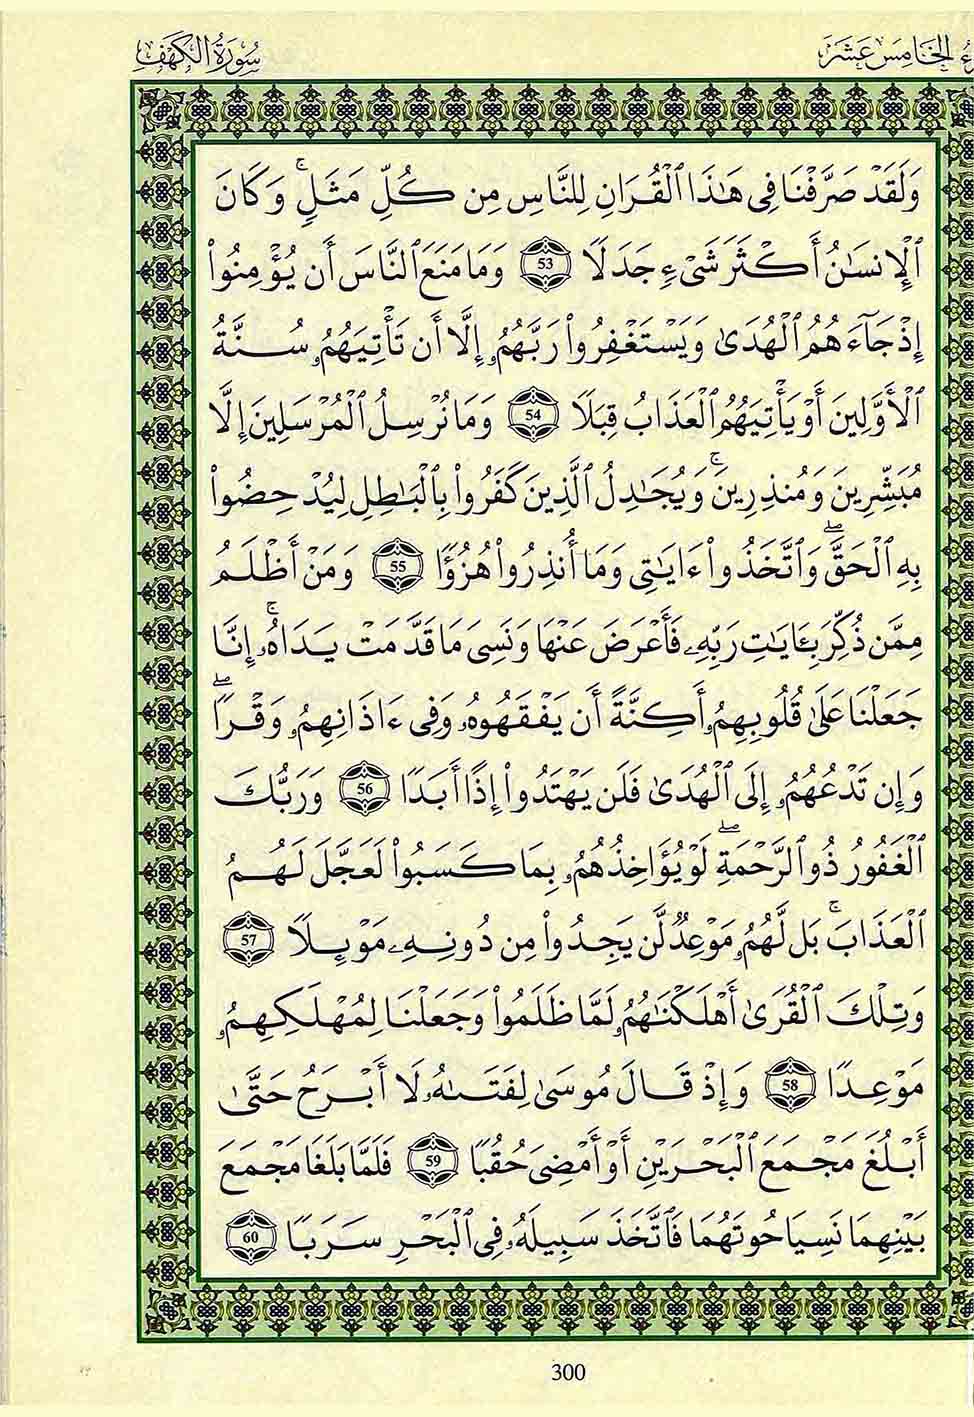 الخَامِسَ عَشَرَ
سُورَةُ الكَهْفِ
وَلَقَدْ صَرَّفْنَا فِى هَٰذَا ٱلْقُرَانِ لِلنَّاسِ مِن كُلِّ مَثَلٍ ۚ وَكَانَ
ٱلْإِنسَٰنُ أَكْثَرَ شَىْءٍ جَدَلًا 53 وَمَا مَنَعَ ٱلنَّاسَ أَن يُؤْمِنُوا۟
إِذْ جَآءَهُمُ ٱلْهُدَىٰ وَيَسْتَغْفِرُوا۟ رَبَّهُمُۥ إِلَّا أَن تَأْتِيَهُمُۥ سُنَّةُ
ٱلْأَوَّلِينَ أَوْ يَأْتِيَهُمُ ٱلْعَذَابُ قِبَلًا 54 وَمَا نُرْسِلُ ٱلْمُرْسَلِينَ إِلَّا
مُبَشِّرِينَ وَمُنذِرِينَ ۚ وَيُجَٰدِلُ ٱلَّذِينَ كَفَرُوا۟ بِٱلْبَٰطِلِ لِيُدْحِضُوا۟
بِهِ ٱلْحَقَّ ۖ وَٱتَّخَذُوا۟ ءَايَٰتِى وَمَا أُنذِرُوا۟ هُزُؤًا 55 وَمَنْ أَظْلَمُ
مِمَّن ذُكِّرَ بِـَٔايَٰتِ رَبِّهِۦ فَأَعْرَضَ عَنْهَا وَنَسِىَ مَا قَدَّمَتْ يَدَاهُ ۚ إِنَّا
جَعَلْنَا عَلَىٰ قُلُوبِهِمُۥ أَكِنَّةً أَن يَفْقَهُوهُۥ وَفِى ءَاذَانِهِمُۥ وَقْرًا ۖ
وَإِن تَدْعُهُمُۥ إِلَى ٱلْهُدَىٰ فَلَن يَهْتَدُوا۟ إِذًا أَبَدًا 56 وَرَبُّكَ
ٱلْغَفُورُ ذُو ٱلرَّحْمَةِ ۖ لَوْ يُؤَاخِذُهُمُۥ بِمَا كَسَبُوا۟ لَعَجَّلَ لَهُمُ
ٱلْعَذَابَ ۚ بَل لَّهُمُۥ مَوْعِدٌ لَّن يَجِدُوا۟ مِن دُونِهِۦ مَوْئِلًا 57
وَتِلْكَ ٱلْقُرَىٰ أَهْلَكْنَٰهُمُۥ لَمَّا ظَلَمُوا۟ وَجَعَلْنَا لِمُهْلَكِهِمُۥ
مَوْعِدًا 58 وَإِذْ قَالَ مُوسَىٰ لِفَتَىٰهُۥ لَا أَبْرَحُ حَتَّىٰ
أَبْلُغَ مَجْمَعَ ٱلْبَحْرَيْنِ أَوْ أَمْضِىَ حُقُبًا 59 فَلَمَّا بَلَغَا مَجْمَعَ
بَيْنِهِمَا نَسِيَا حُوتَهُمَا فَٱتَّخَذَ سَبِيلَهُۥ فِى ٱلْبَحْرِ سَرَبًا 60
300